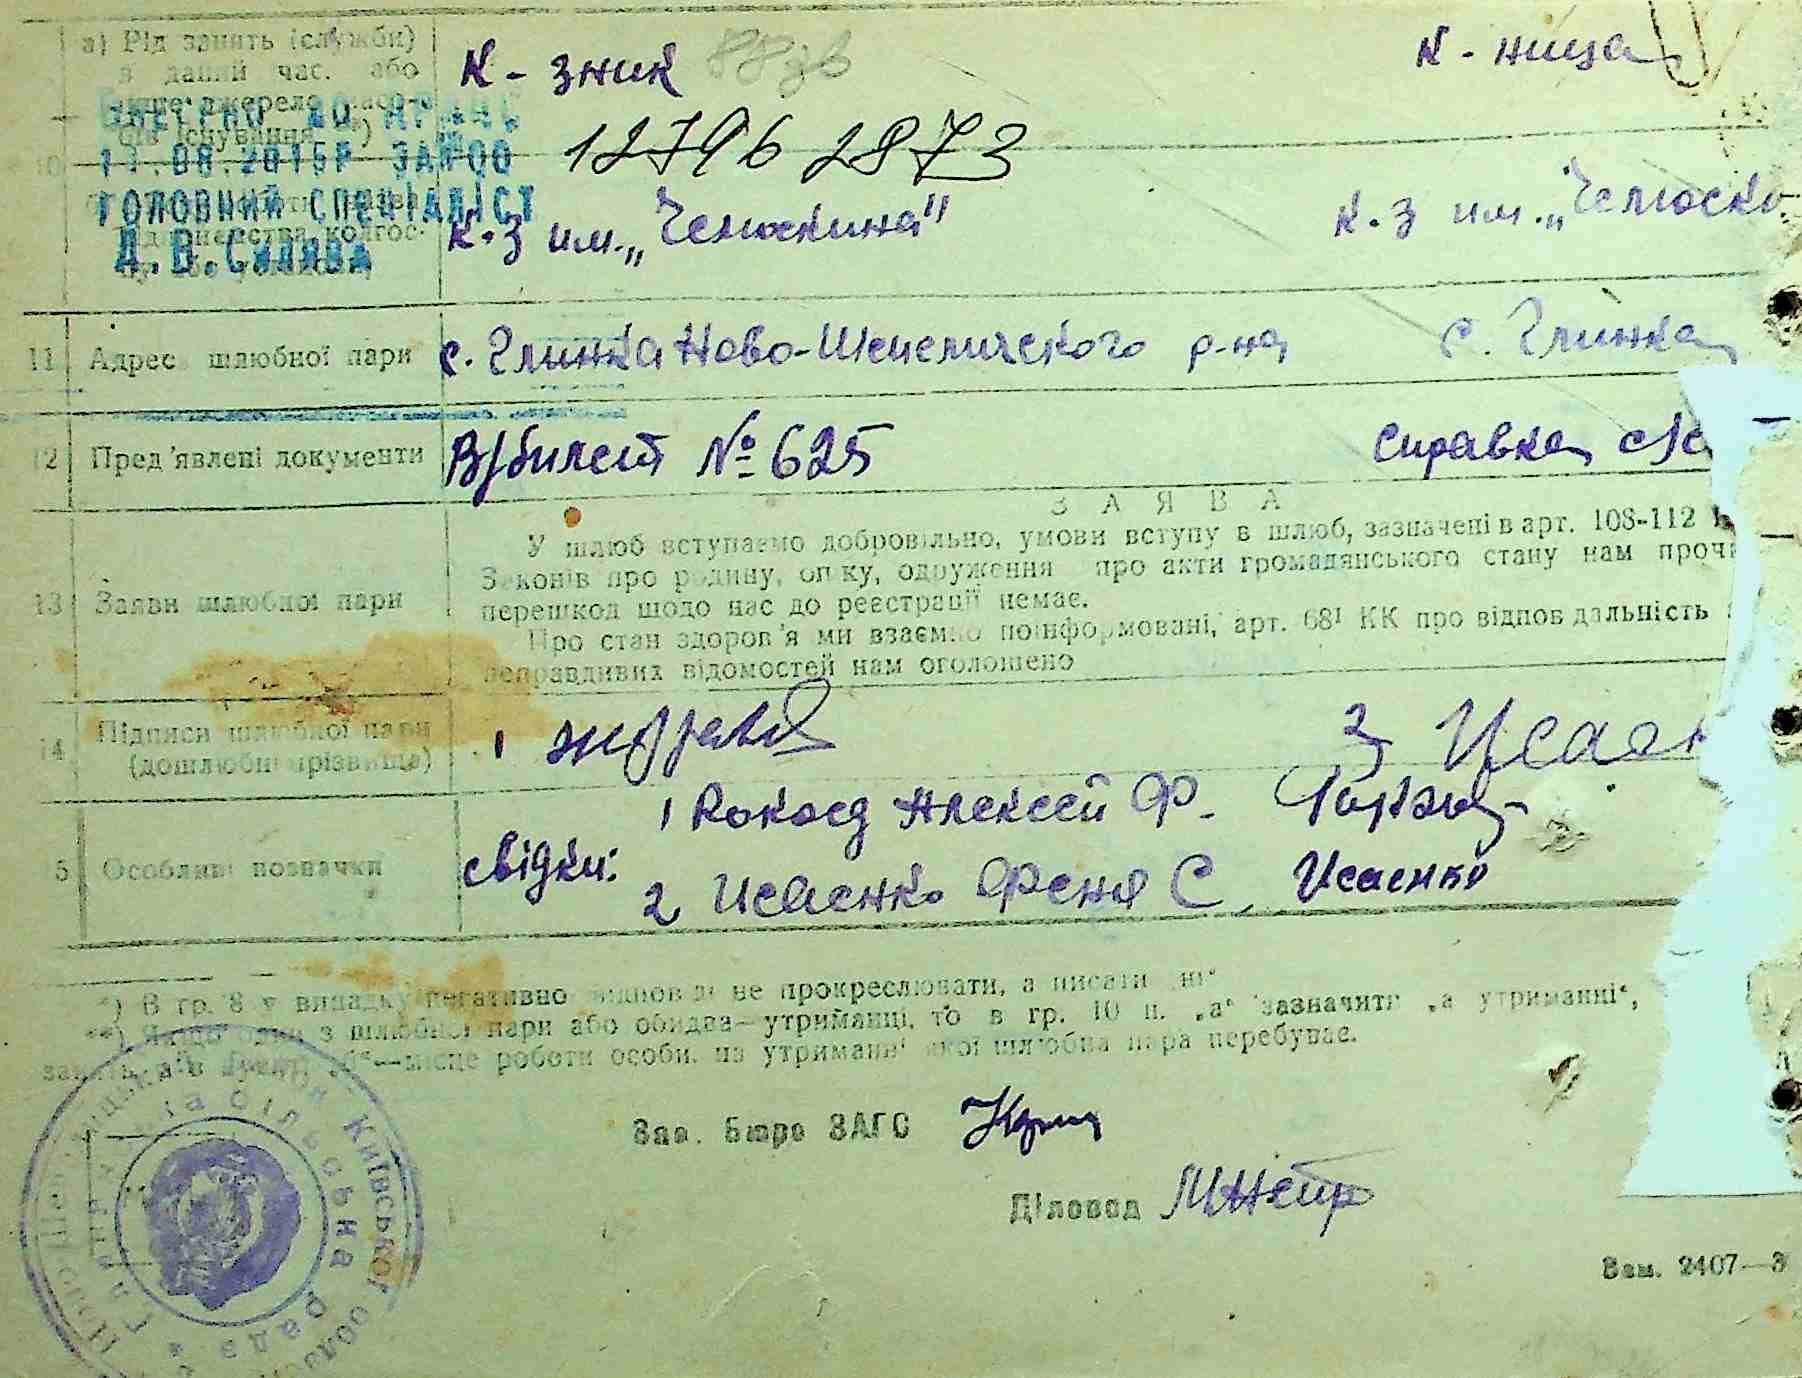 а) Рід занять (служби) в даний час, або
К-зник 88зв К-ница
інше джерело
ВНЕСЕНО ДО ДРАЦС
існування *)
11.08.2015Р ЗА №00
12796 2873
ГОЛОВНИЙ СПЕЦІАЛІСТ
К-з им. „Челюскина" К-з им. „Челюски
Д.В.Силява
11 Адрес шлюбної пари с. Глинка Ново-Шепеличского р-на с. Глинка
12 Пред'явлені документи В/билет № 625 Справка с/с
ЗАЯВА
У шлюб вступаємо добровільно, умови вступу в шлюб, зазначені в арт. 108-112
Законів про родину, опіку, одруження про акти громадянського стану нам проч
13 Заяви шлюбної пари
перешкод щодо нас до реєстрації немає.
Про стан здоров'я ми взаємно поінформовані, арт. 68¹ КК про відповідальність
неправдивих відомостей нам оголошено
14 Підписи шлюбної пари (дошлюбні прізвища) 1 Журав 2 Исаен
15 Особливі позначки свідки: 1 Кокоед Алексей Ф.
2 Исаенко Феня С. Исаенко
*) В гр. 8 у випадку негативної відповіді не прокреслювати, а писати „ні"
**) Якщо один з шлюбної пари або обидва—утриманці, то в гр. 10 п. „а" зазначити „а утриманні",
—місце роботи особи, на утриманні якої шлюбна пара перебуває.
Зав. Бюро ЗАГС
Діловод
Зам. 2407—3
Київської
сільська рада